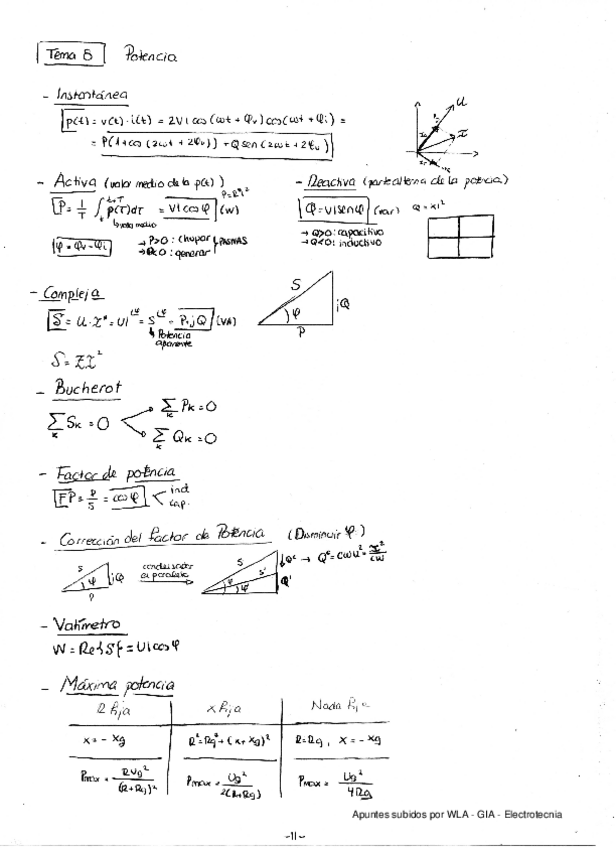 Tema 5 Potencia
- Instantánea
p(t) = v(t)·i(t) = 2VI cos(ωt + φv) cos(ωt + φi) =
= P(1+cos(2ωt + 2φv)) + Q sen(2ωt + 2φv)
U
I
- Activa (valor medio de la p(t))
P = 1/T ∫ p(τ)dτ = VI cos φ (W)
valor medio
φ = φv - φi
→ P>0: chupar
→ P<0: generar
- Reactiva (parte alterna de la potencia)
Q = VI sen φ (var) Q = XI²
→ Q>0: capacitivo
→ Q<0: inductivo
- Compleja
S = U·I* = UI = S = P+jQ (VA)
Potencia
aparente
S = ZI²
S φ P jQ
- Bucherot
Σ Sk = 0
k
Σ Pk = 0
k
Σ Qk = 0
k
- Factor de potencia
FP = P/S = cos φ
ind
cap.
- Corrección del factor de Potencia (Disminuir φ)
S φ P jQ
condensador
en paralelo
S S' φ φ' Qc Q' → Qc = CωU² = I²/Cω
- Vatímetro
W = Re{S} = UI cos φ
- Máxima potencia
R Fija X Fija Nada Fija
X = - Xg R² = Rg² + (X + Xg)² R = Rg, X = - Xg
Pmax = RUg²/(R+Rg)² Pmax = Ug²/2(R+Rg) Pmax = Ug²/4Rg
Apuntes subidos por WLA - GIA - Electrotecnia
-11-